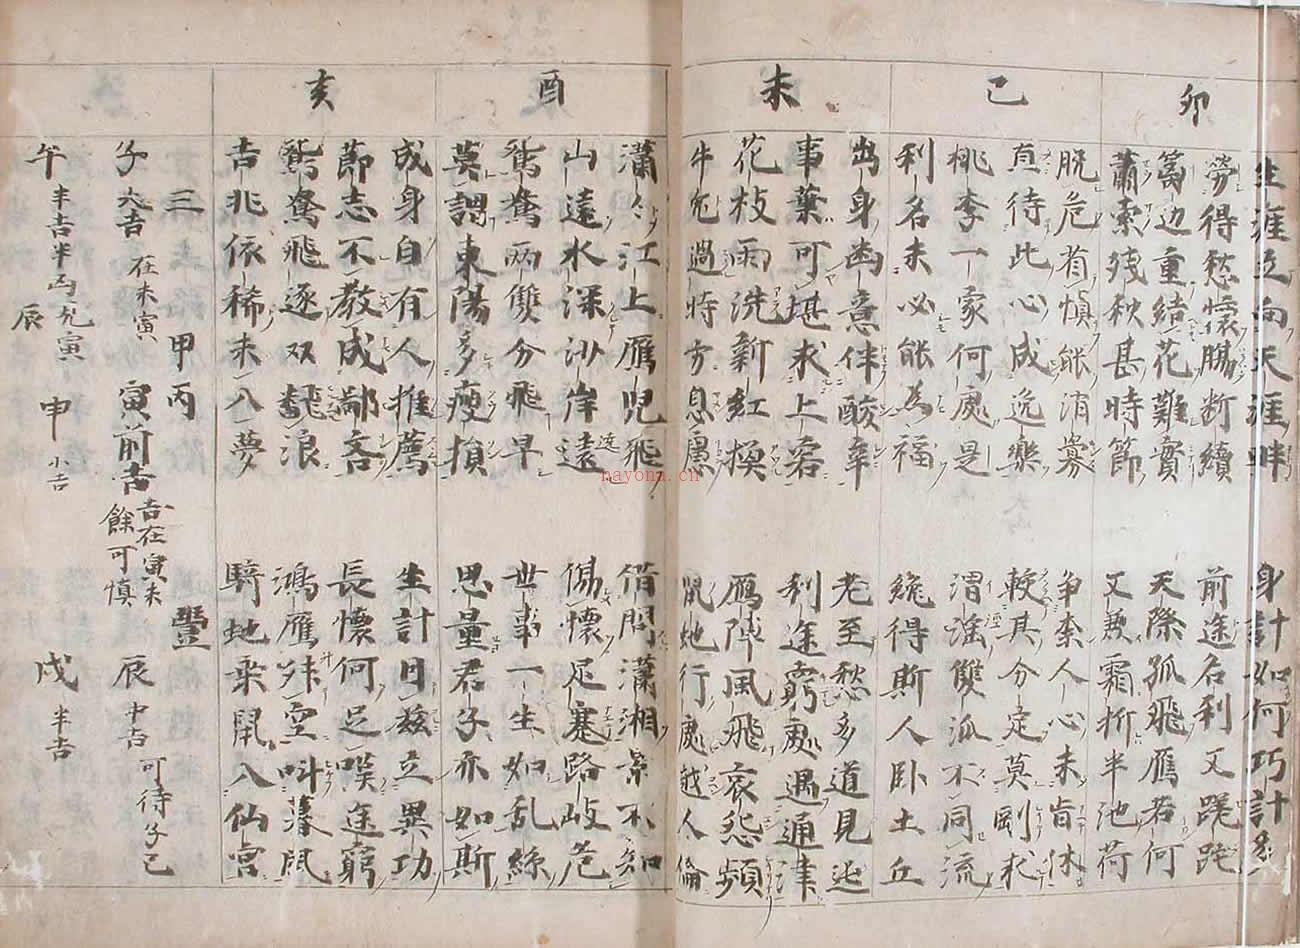 卯
生涯立向天涯畔 身計如何巧計
勞得愁懷腸断續 前途名利又蹉跎
篱边重結花難實 天際孤飛雁若何
蕭索残秋甚時節 又兼霜折半池荷
巳
脱危有慎能消 争奈人心未肯休
直待此心成逸樂 較其分定莫剛求
桃李一家何處是 渭涇雙派不同流
利名未必能為福 纔得斯人卧土丘
未
出身幽意伴酸辛 老至愁多道見迍
事業可堪求上若 利途窮處遇通津
花枝雨洗新紅換 雁陣風飛哀怨頻
牛兒過時方息慮 鼠蛇行處越人倫
酉
瀟々江上雁兒飛 借問瀟湘景不知
山遠水深沙岸遠 傷懷足蹇路岐危
鴛鴦兩雙分飛早 世事一生如乱絲
莫謂東陽多瘦損 思量君子亦如斯
亥
成身自有人推薦 生計日茲立異功
節志不教成鄙吝 長懷何足嘆途窮
鴛鴦飛逐双翻浪 鴻雁狀空叫暮風
吉兆依稀未入夢 騎蛇乘鼠入仙宮
三 甲丙 豐
子 大吉 在未寅 寅前吉 吉在寅未 餘可慎 辰 中吉 可待子巳
午 半吉半凶 寅 辰 申 小吉 戌 半吉
nayona.cn